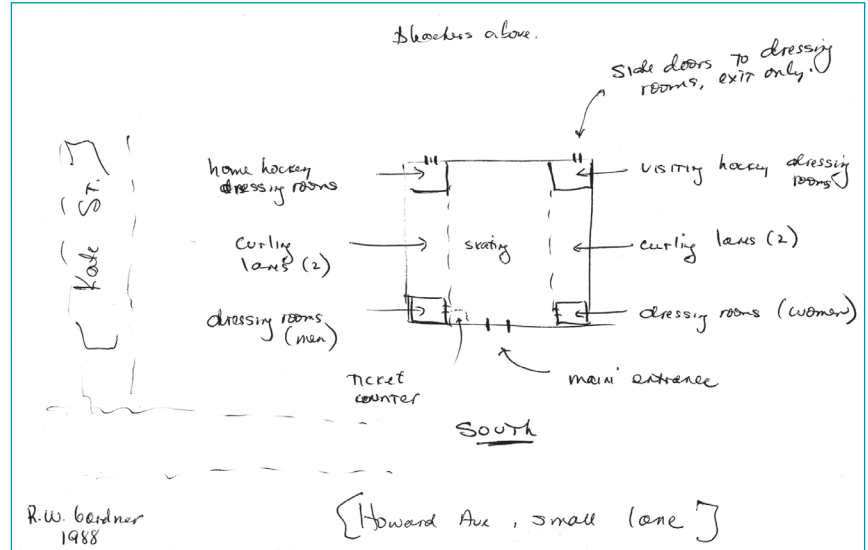 Bleachers above.
Side doors to dressing
rooms, exit only.
home hockey
dressing rooms
visiting hockey dressing
rooms
Kate St.
curling
lanes (2)
skating
curling lanes (2)
dressing rooms
(men)
dressing rooms (women)
Ticket
counter
main entrance
South
R.W. Gardner
1988
[Howard Ave, small lane]